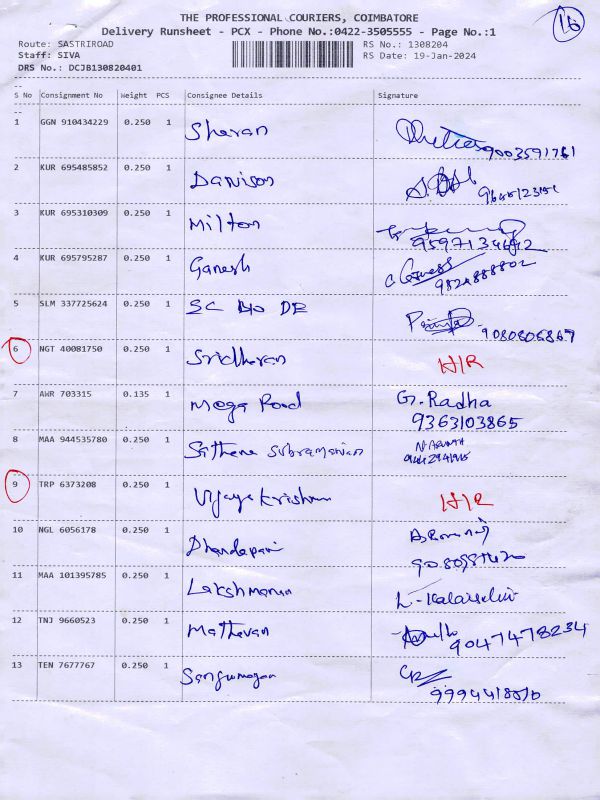 16
THE PROFESSIONAL COURIERS, COIMBATORE
Delivery Runsheet - PCX - Phone No.:0422-3505555 - Page No.:1
Route: SASTRIROAD RS No.: 1308204
Staff: SIVA RS Date: 19-Jan-2024
DRS No.: DCJB130820401
S No Consignment No Weight PCS Consignee Details Signature
1 GGN 910434229 0.250 1 Sharan 9003591761
2 KUR 695485852 0.250 1 Davison
3 KUR 695310309 0.250 1 Milton
4 KUR 695795287 0.250 1 Ganesh C. Ganesh
9824888802
5 SLM 337725624 0.250 1 SC DE
9080806867
6 NGT 40081750 0.250 1 Sridharan H/R
7 AWR 703315 0.135 1 Mega Food G. Radha
9363103865
8 MAA 944535780 0.250 1 Subramanian
9 TRP 6373208 0.250 1 Vijaya Krishnan H/R
10 NGL 6056178 0.250 1 Dhandapani
11 MAA 101395785 0.250 1 Lakshmanan L. Kalaiselvi
12 TNJ 9660523 0.250 1 Mathavan 9047478234
13 TEN 7677767 0.250 1